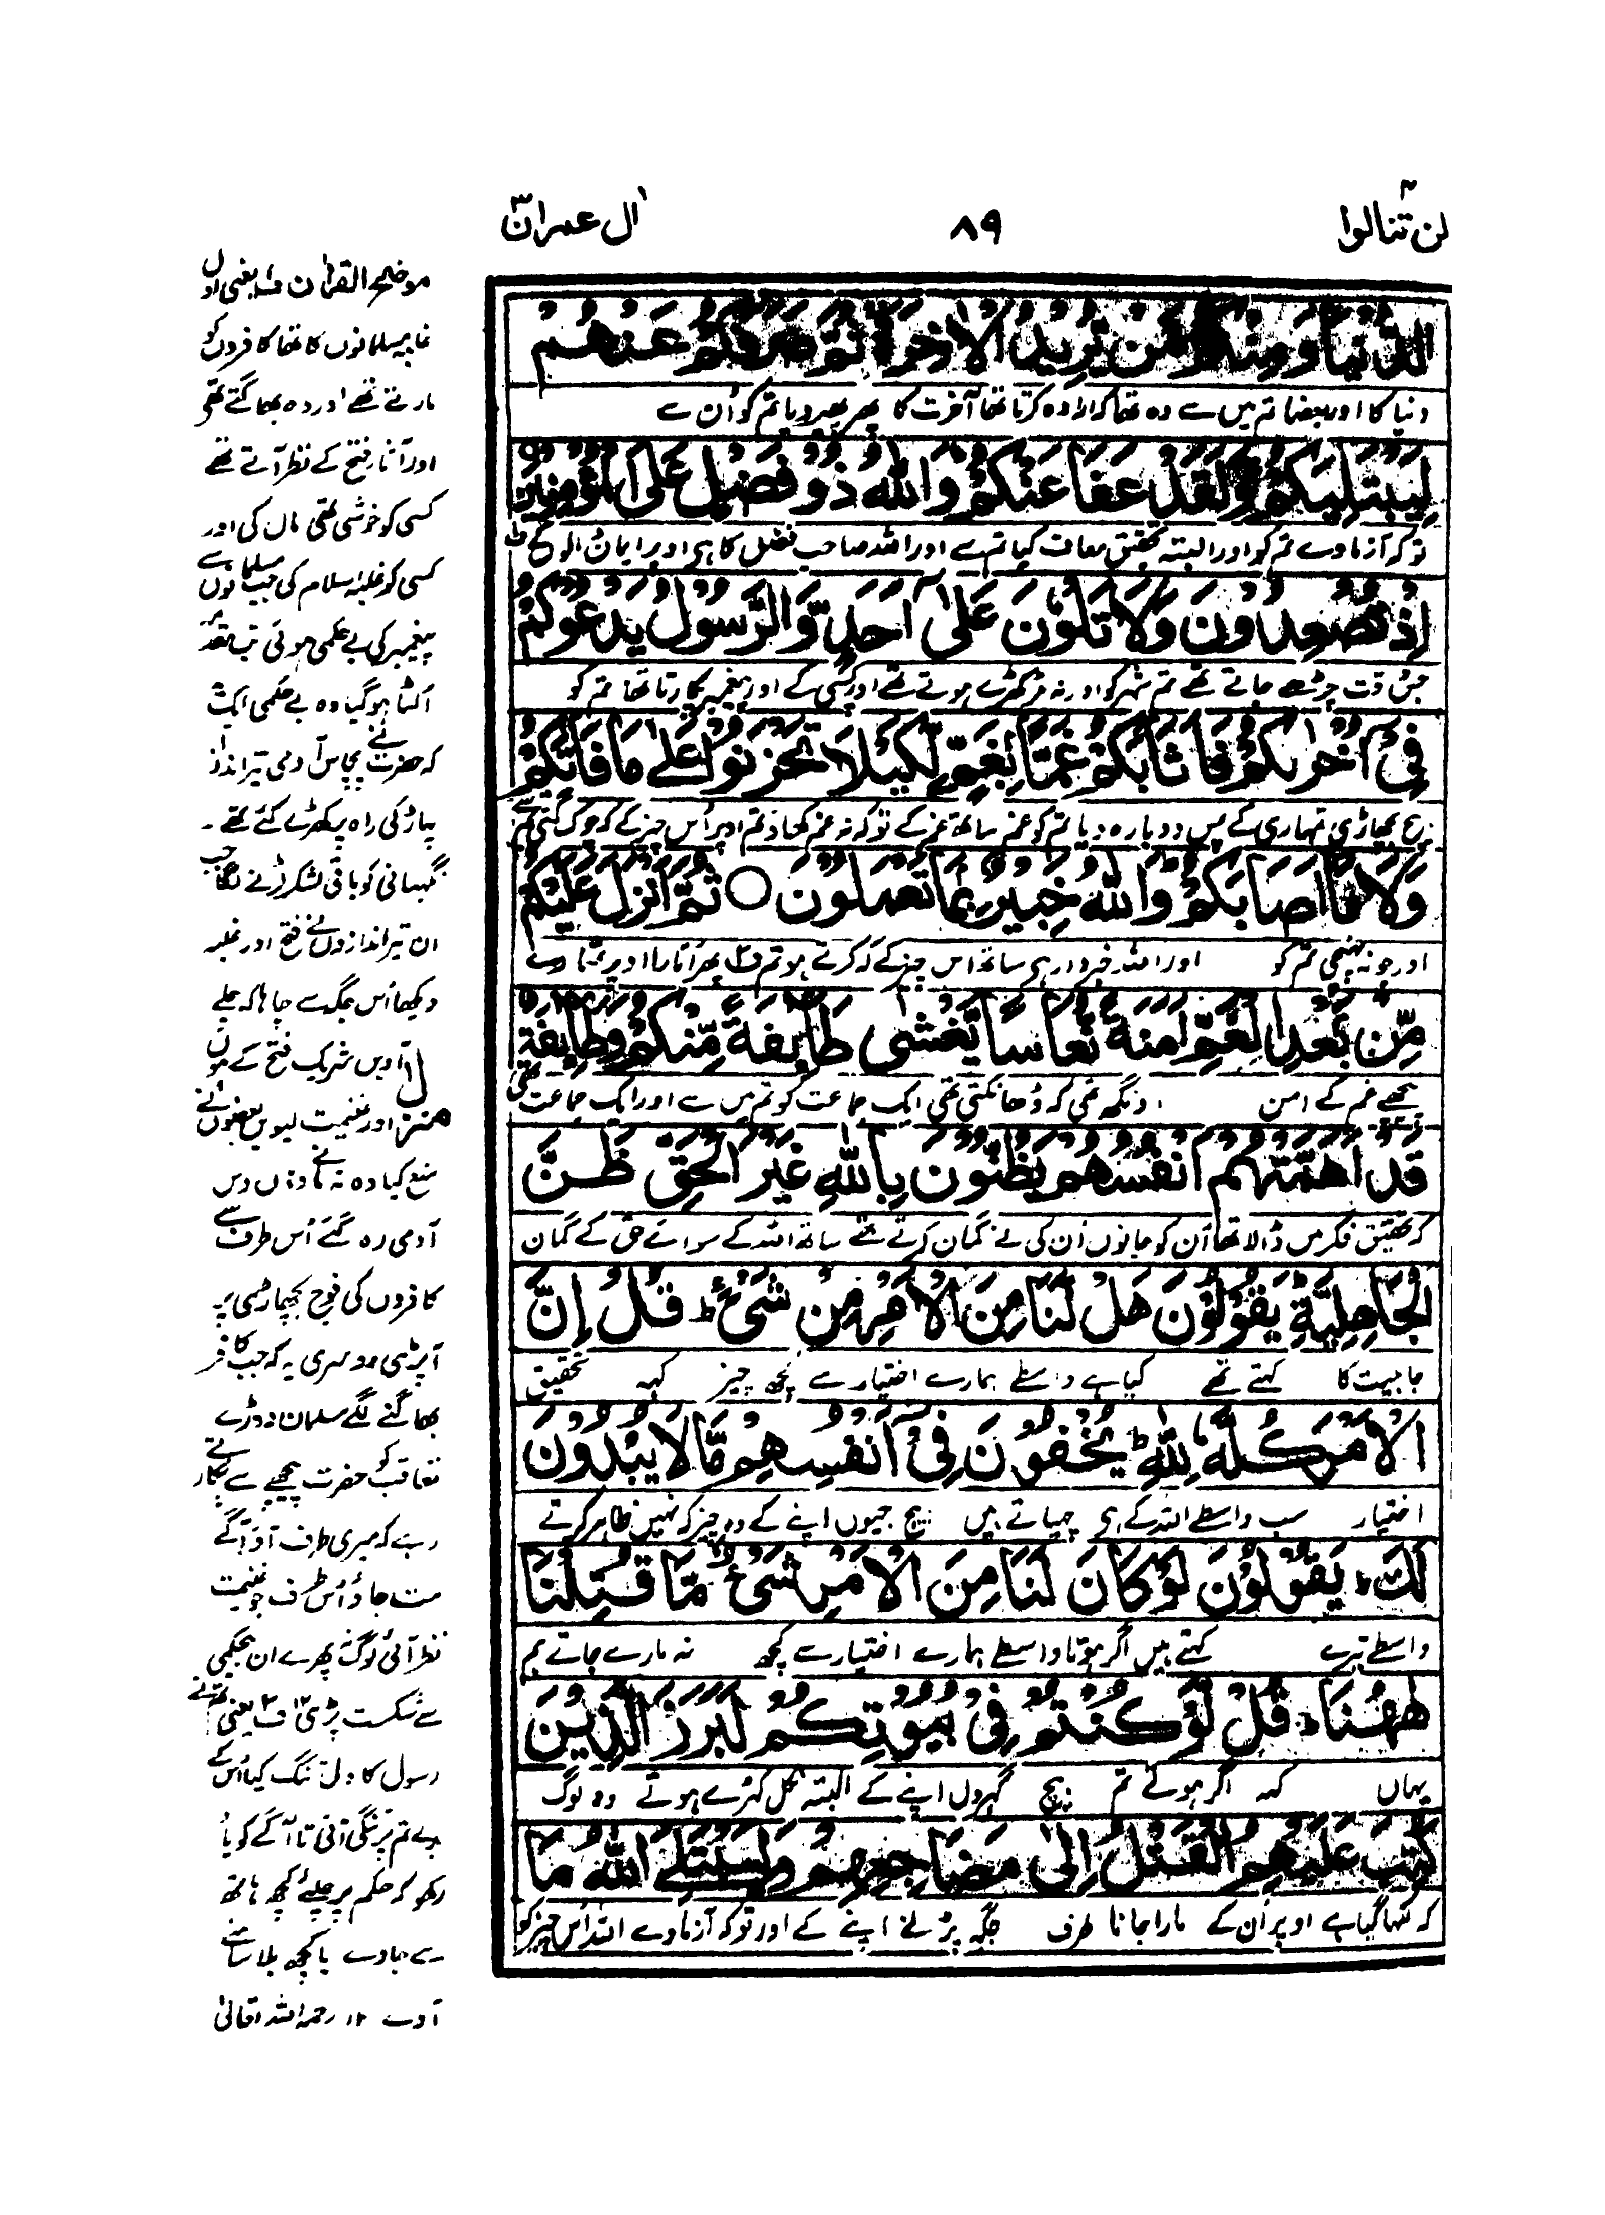 لن تنالوا ۴
۸۹
اٰل عمران ۳
الدُّنْيَا وَمِنْكُمْ مَّنْ يُّرِيْدُ الْاٰخِرَةَ ثُمَّ صَرَفَكُمْ عَنْهُمْ
دنیا کا اور بعضا تم میں سے وہ تھا کہ ارادہ کرتا تھا آخرت کا پھر پھیر دیا تم کو اُن سے
لِيَبْتَلِيَكُمْ وَلَقَدْ عَفَا عَنْكُمْ وَاللّٰهُ ذُوْ فَضْلٍ عَلَى الْمُؤْمِنِيْنَ
تو کہ آزماوے تم کو اور البتہ تحقیق معاف کیا تم سے اور اللہ صاحب فضل کا ہی اوپر ایمان والوں کے
اِذْ تُصْعِدُوْنَ وَلَا تَلْوٗنَ عَلٰٓى اَحَدٍ وَّالرَّسُوْلُ يَدْعُوْكُمْ
جس وقت چڑھے جاتے تھے تم شہر کو اور نہ مڑ کھڑے ہوتے تھے اوپر کسی کے اور پیغمبر پکارتا تھا تم کو
فِيْٓ اُخْرٰىكُمْ فَاَثَابَكُمْ غَمًّۢا بِغَمٍّ لِّكَيْلَا تَحْزَنُوْا عَلٰى مَا فَاتَكُمْ
بیچ پچھاڑی تمہاری کے پس دوبارہ دیا تم کو غم ساتھ غم کے تو کہ نہ غم کھاؤ تم اوپر اُس چیز کے کہ چوک گئی تم سے
وَلَا مَآ اَصَابَكُمْ وَاللّٰهُ خَبِيْرٌۢ بِمَا تَعْمَلُوْنَ ○ ثُمَّ اَنْزَلَ عَلَيْكُمْ
اور جو نہ پہنچی تم کو اور اللہ خبردار ہی ساتھ اس چیز کے کہ کرتے ہو تم ف پھر اُتارا اوپر تمہارے
مِّنْۢ بَعْدِ الْغَمِّ اَمَنَةً نُّعَاسًا يَّغْشٰى طَآئِفَةً مِّنْكُمْ وَطَآئِفَةٌ
پیچھے غم کے امن اونگھ تھی کہ ڈھانکتی تھی ایک جماعت کو تم میں سے اور ایک جماعت تھی
قَدْ اَهَمَّتْهُمْ اَنْفُسُهُمْ يَظُنُّوْنَ بِاللّٰهِ غَيْرَ الْحَقِّ ظَنَّ
کہ تحقیق فکر میں ڈالا تھا اُن کو جانوں اُن کی نے گمان کرتے تھے ساتھ اللہ کے سوائے حق کے گمان
الْجَاهِلِيَّةِ يَقُوْلُوْنَ هَلْ لَّنَا مِنَ الْاَمْرِ مِنْ شَيْءٍ ط قُلْ اِنَّ
جاہلیت کا کہتے تھے کیا ہے واسطے ہمارے اختیار سے کچھ چیز کہہ تحقیق
الْاَمْرَ كُلَّهٗ لِلّٰهِ ط يُخْفُوْنَ فِيْٓ اَنْفُسِهِمْ مَّا لَا يُبْدُوْنَ
اختیار سب واسطے اللہ کے ہی چھپاتے ہیں بیچ جیوں اپنے کے وہ چیز کہ نہیں ظاہر کرتے
لَكَ ط يَقُوْلُوْنَ لَوْ كَانَ لَنَا مِنَ الْاَمْرِ شَيْءٌ مَّا قُتِلْنَا
واسطے تیرے کہتے ہیں اگر ہوتا واسطے ہمارے اختیار سے کچھ نہ مارے جاتے ہم
هٰهُنَا ط قُلْ لَّوْ كُنْتُمْ فِيْ بُيُوْتِكُمْ لَبَرَزَ الَّذِيْنَ
یہاں کہہ اگر ہوتے تم بیچ گہروں اپنے کے البتہ نکل کہڑے ہوتے وہ لوگ
كُتِبَ عَلَيْهِمُ الْقَتْلُ اِلٰى مَضَاجِعِهِمْ وَلِيَبْتَلِيَ اللّٰهُ مَا
کہ لکہا گیا ہے اوپر اُن کے مارا جانا طرف جگہ پڑنے اپنے کے اور تو کہ آزماوے اللہ اُس چیز کو
موضح القرآن ف۱ یعنی اول
غلبہ مسلمانوں کا تھا کافروں کو
مارتے تھے اور وہ بھاگتے تھے
اور آثار فتح کے نظر آتے تھے
کسی کو خوشی تھی مال کی اور
کسی کو غلبۂ اسلام کی جب مسلمانوں سے
پیغمبر کی بے حکمی ہوئی تب مقدمہ
اُلٹا ہو گیا وہ بے حکمی ایک یہ
کہ حضرت نے پچاس آدمی تیر انداز
پہاڑ کی راہ پر کھڑے کئے تھے۔
نگہبانی کو باقی لشکر لڑنے لگا جب
ان تیر اندازوں نے فتح اور غلبہ
دیکھا اُس جگہ سے چاہا کہ چلے
آویں شریک فتح کے ہوں
اور غنیمت لیویں بعضوں نے
منع کیا وہ نہ مانے وہاں دس
آدمی رہ گئے اُس طرف سے
کافروں کی فوج پچھاڑی پر
آ پڑی دوسری یہ کہ جب کافر
بھاگنے لگے مسلمان دوڑے
تعاقب کو حضرت پیچھے سے پکارتے
رہے کہ میری طرف آؤ آگے
مت جاؤ اُس طرف جو غنیمت
نظر آئی لوگ نہ پھرے ان بے حکمی
سے شکست پڑی ۱۲ ف۲ یعنی تم نے
رسول کا دل تنگ کیا اُس کے
بدلے تم پر تنگی آئی تا آگے کو یاد
رکھو کہ حکم پر چلئے کچھ ہاتھ
سے جاوے یا کچھ بلا سامنے
آوے ۱۲ رحمہ اللہ تعالیٰ